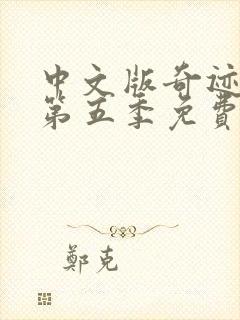 中文版奇迹
第五季免費
鄭克